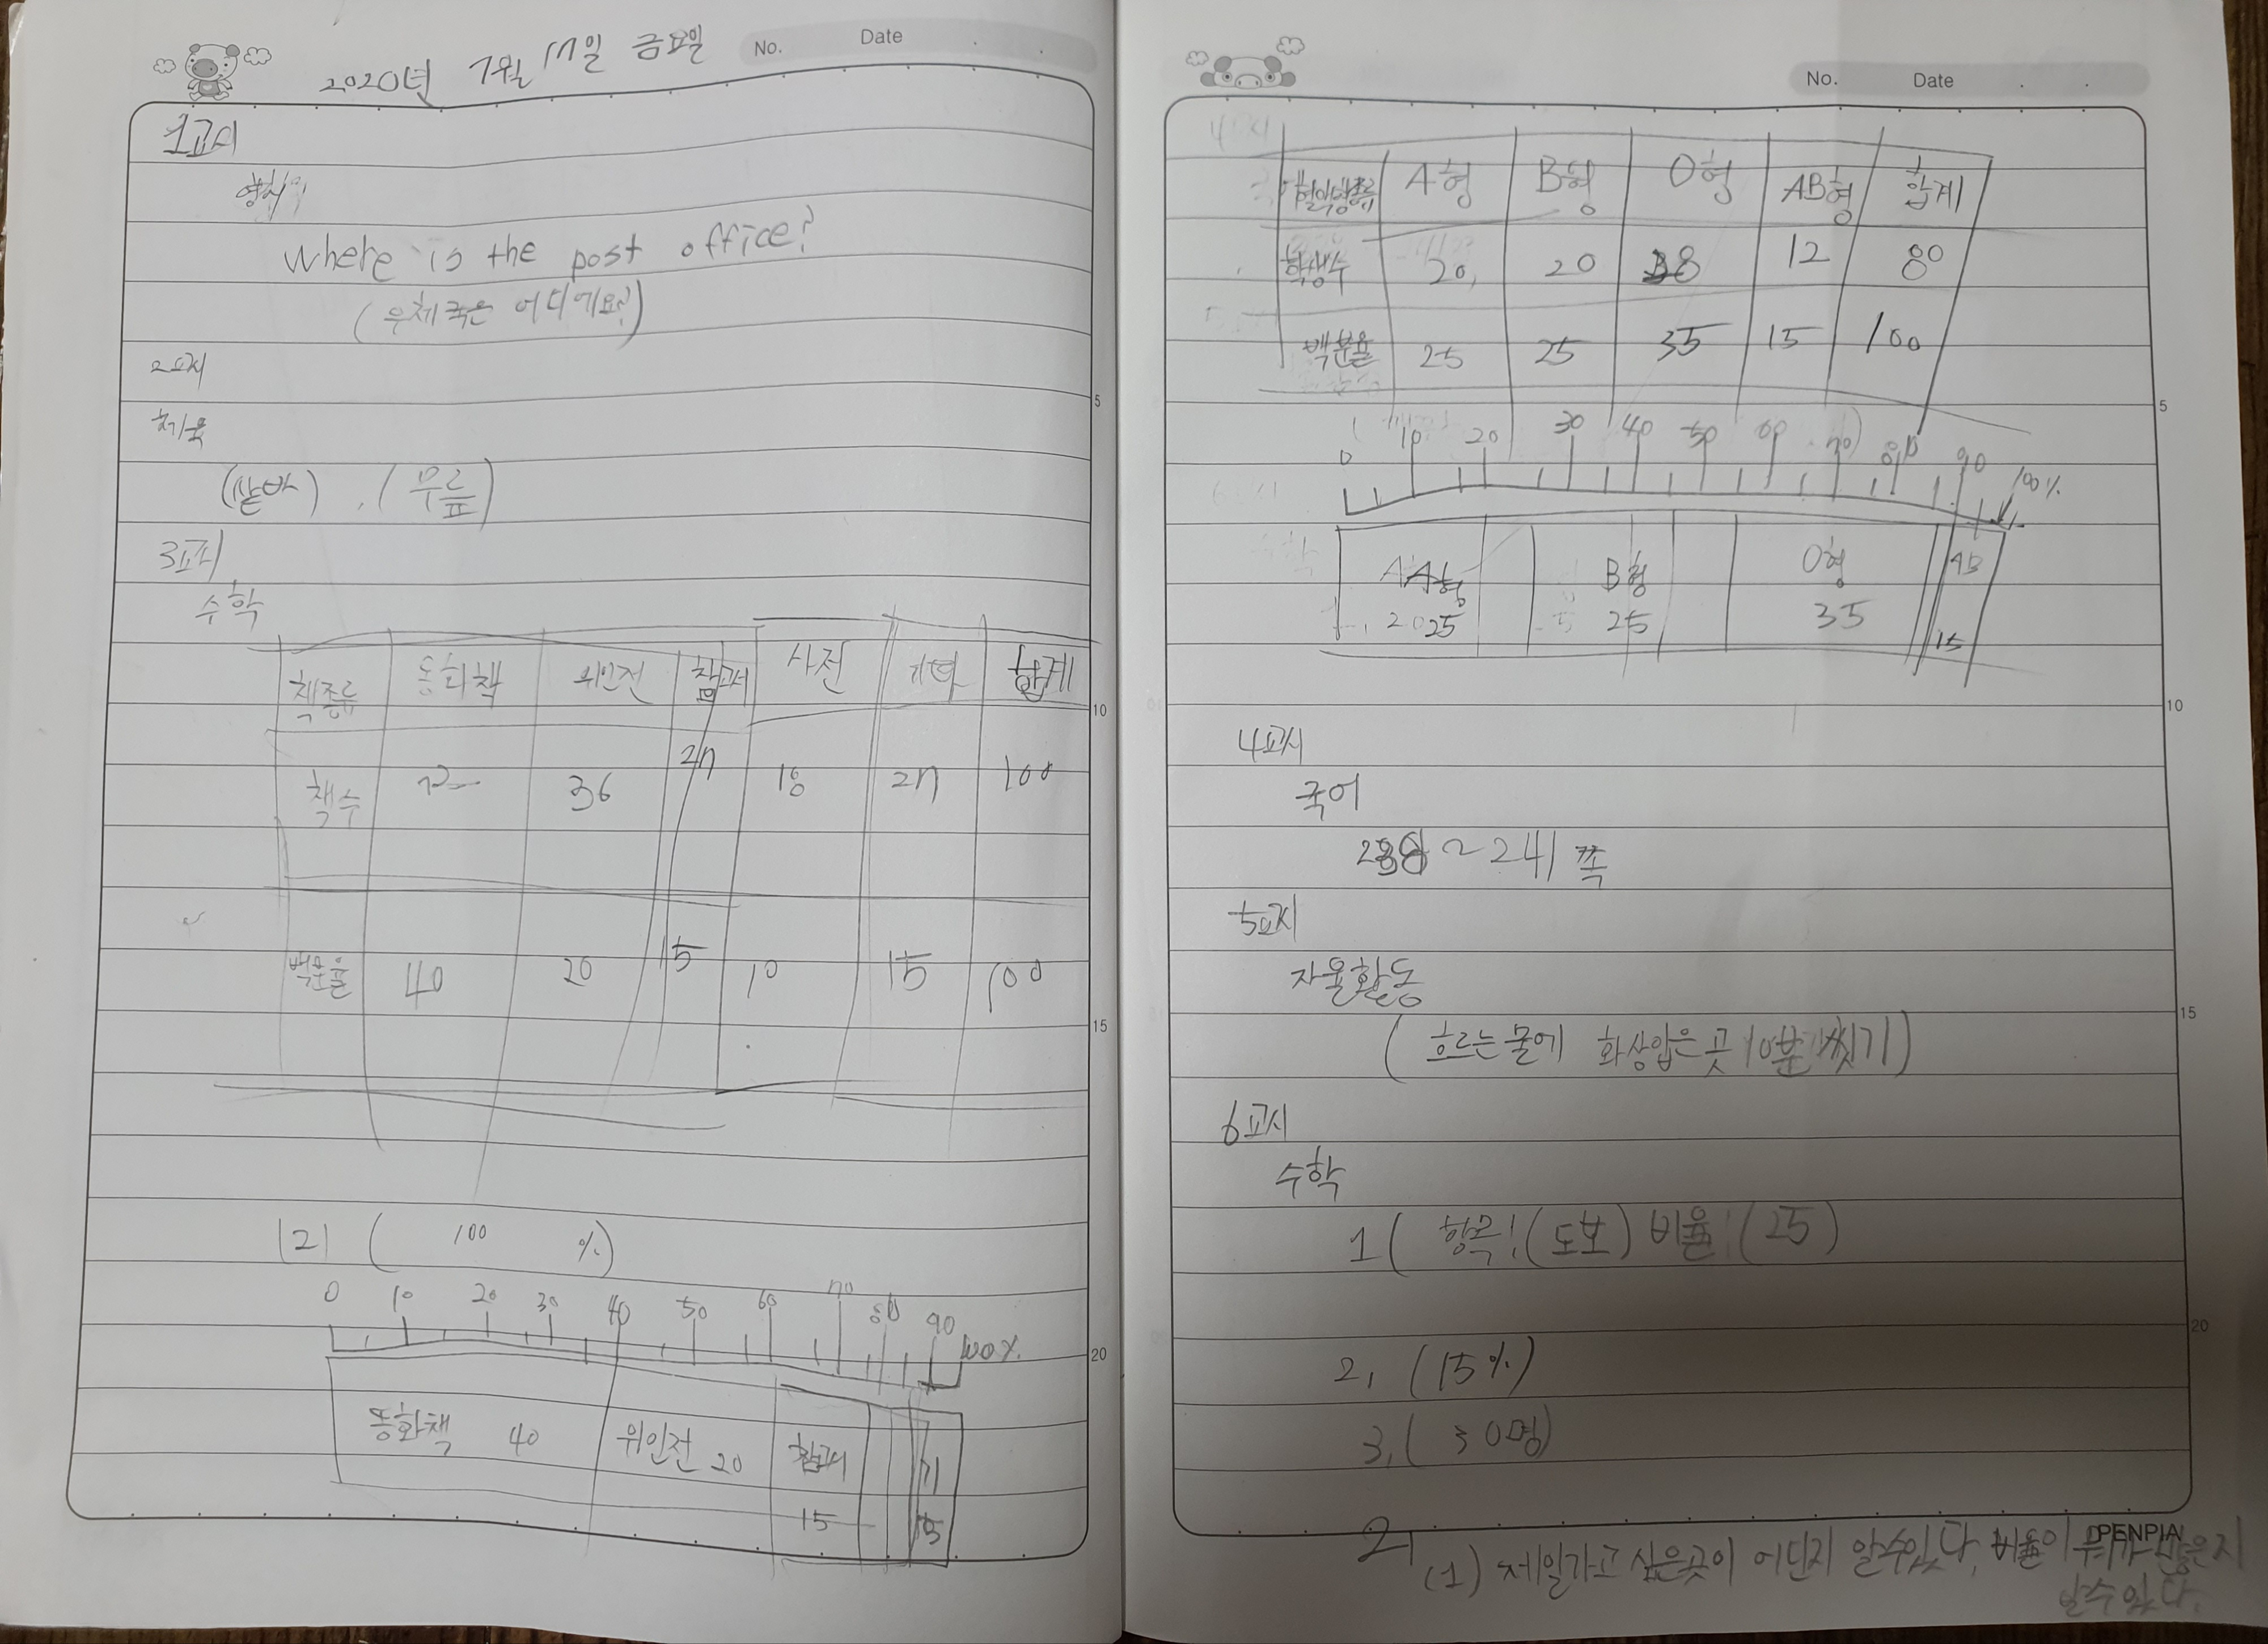 2020년 7월 17일 금요일
No. Date
1교시
영어
where is the post office?
(우체국은 어디에요?)
2교시
체육
(샅바), (무릎)
3교시
수학
책종류 동화책 위인전 참고서 사전 기타 합계
책수 72 36 27 18 27 100
백분율 40 20 15 10 15 100
5
10
15
20
2) (100 %)
0 10 20 30 40 50 60 70 80 90 100%
동화책 40 위인전 20 참고서 기
15 15
No. Date
혈액형종류 A형 B형 O형 AB형 합계
학생수 20 20 28 12 80
백분율 25 25 35 15 100
0 10 20 30 40 50 60 70 80 90 100%
A형 B형 O형 AB
25 25 35 15
4교시
국어
~241쪽
5교시
자율활동
(흐르는물에 화상입은 곳 10분 씻기)
6교시
수학
1 (항목:(도보) 비율:(25)
2, (15%)
3, (30명)
2, (1) 제일가고 싶은곳이 어딘지 알수있다, 비율이 많은지
알수있다.
5
10
15
20
PENPIA